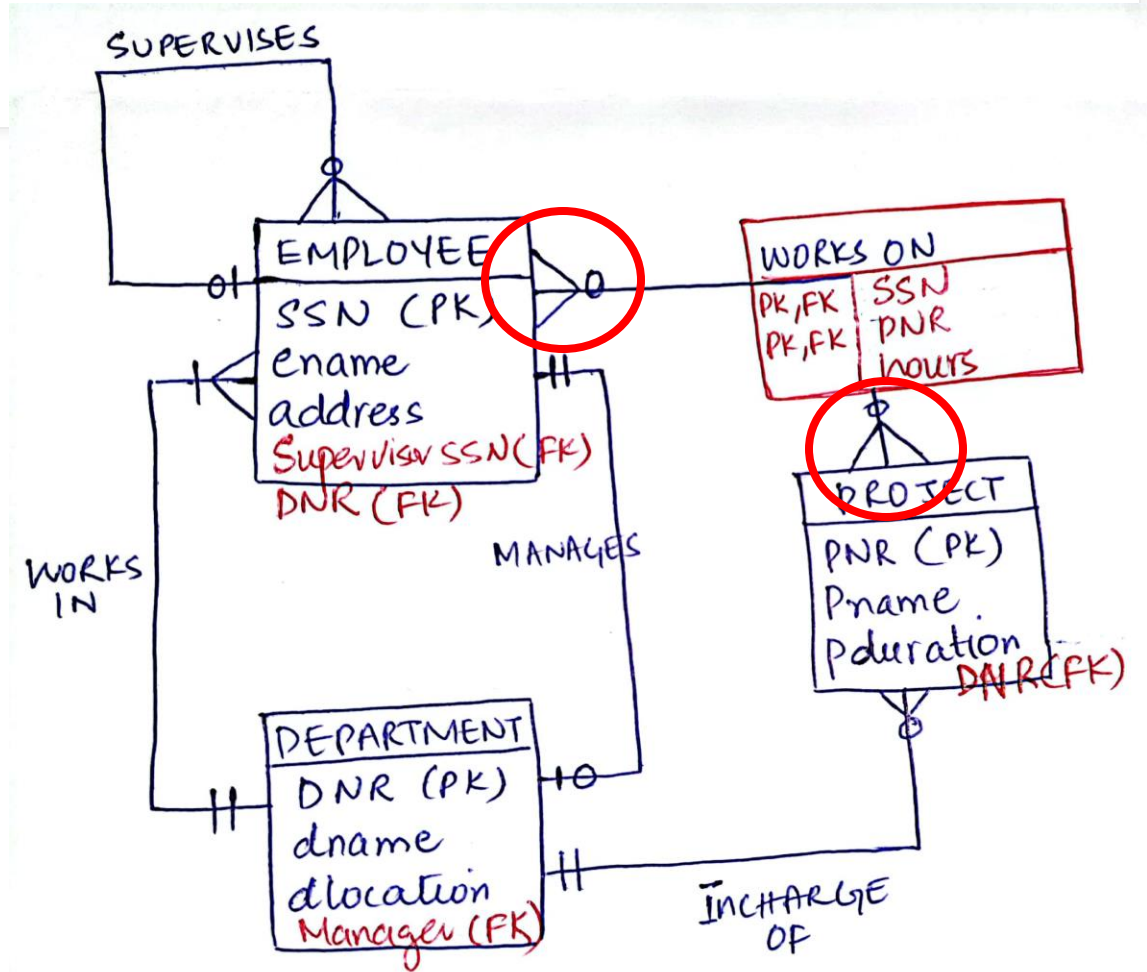 SUPERVISES
EMPLOYEE
SSN (PK)
ename
address
Supervisor SSN (FK)
DNR (FK)
WORKS ON
PK,FK SSN
PK,FK PNR
hours
PROJECT
PNR (PK)
Pname
Pduration
DNR (FK)
WORKS
IN
MANAGES
DEPARTMENT
DNR (PK)
dname
dlocation
Manager (FK)
INCHARGE
OF